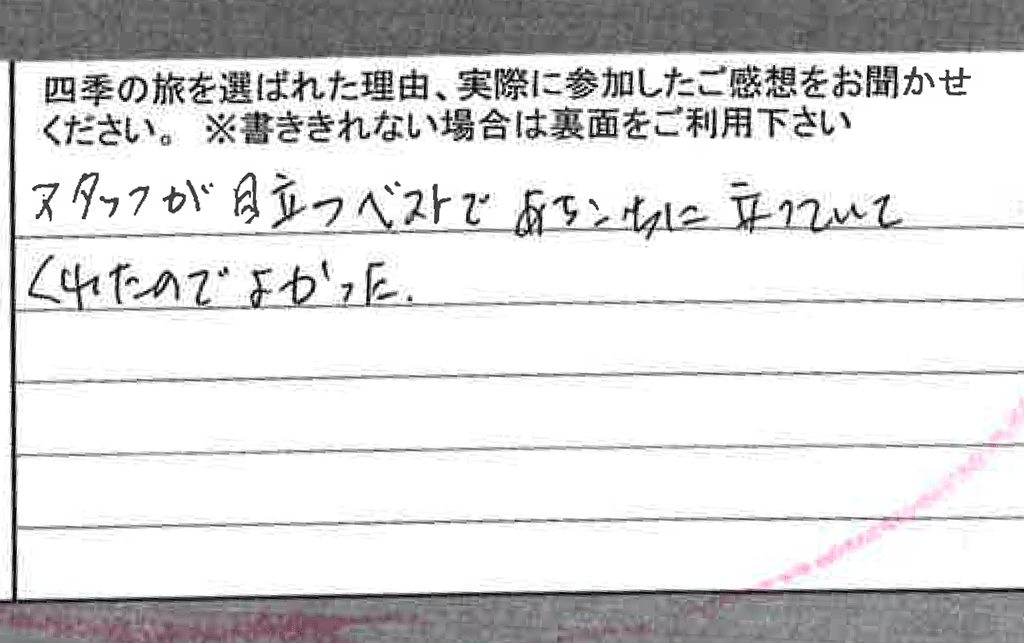 四季の旅を選ばれた理由、実際に参加したご感想をお聞かせ
ください。 ※書ききれない場合は裏面をご利用下さい
スタッフが目立つベストであちこちに立っていて
くれたのでよかった.